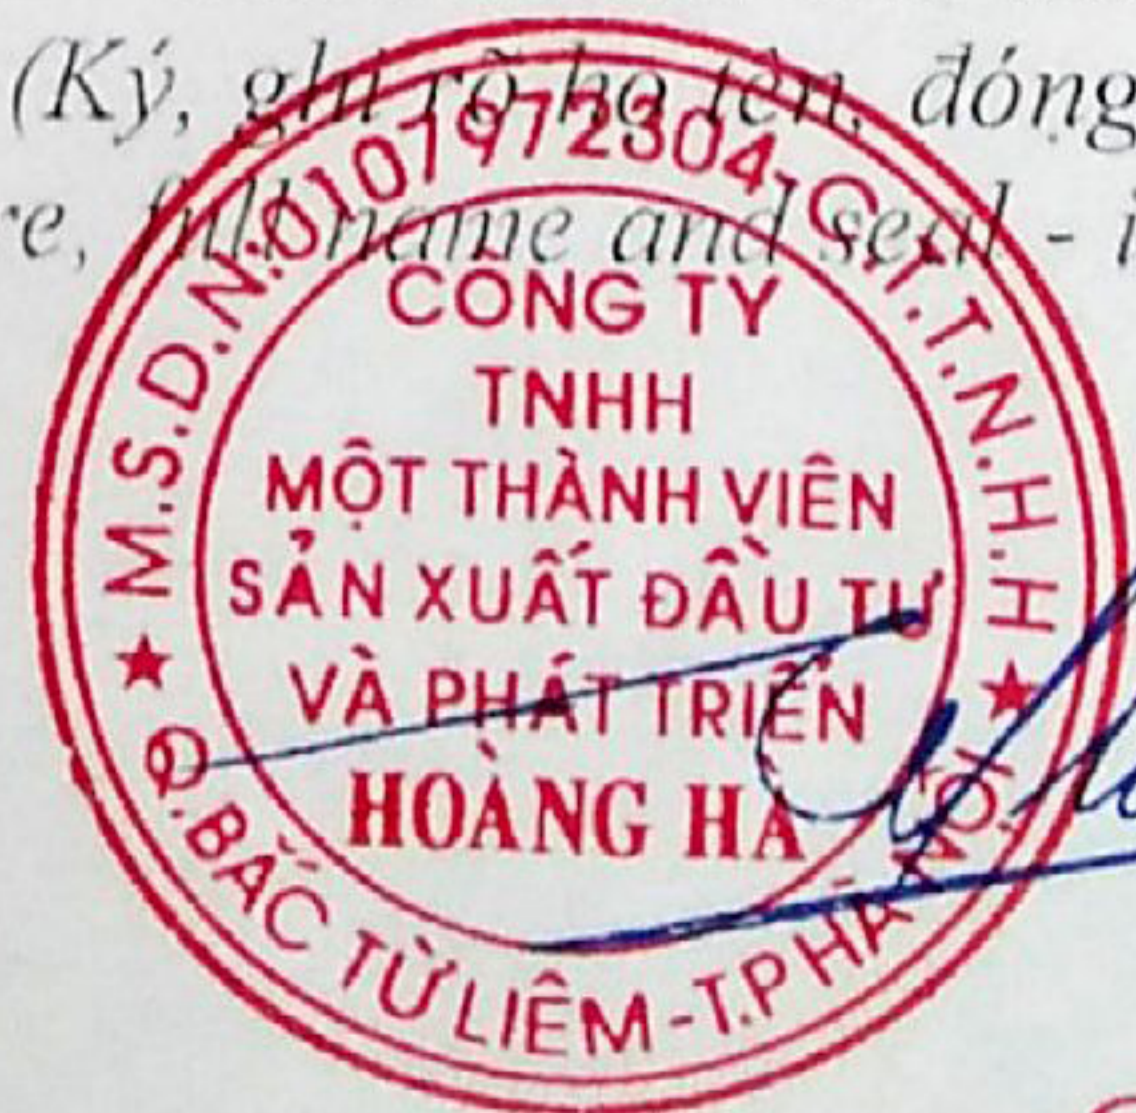 (Ký, ghi rõ họ tên, đóng
re, full name and seal - i
M.S.D.N:0107972304-C.T.T.N.H.H
CÔNG TY
TNHH
MỘT THÀNH VIÊN
SẢN XUẤT ĐẦU TƯ
VÀ PHÁT TRIỂN
HOÀNG HÀ
Q.BẮC TỪ LIÊM-T.P HÀ NỘI